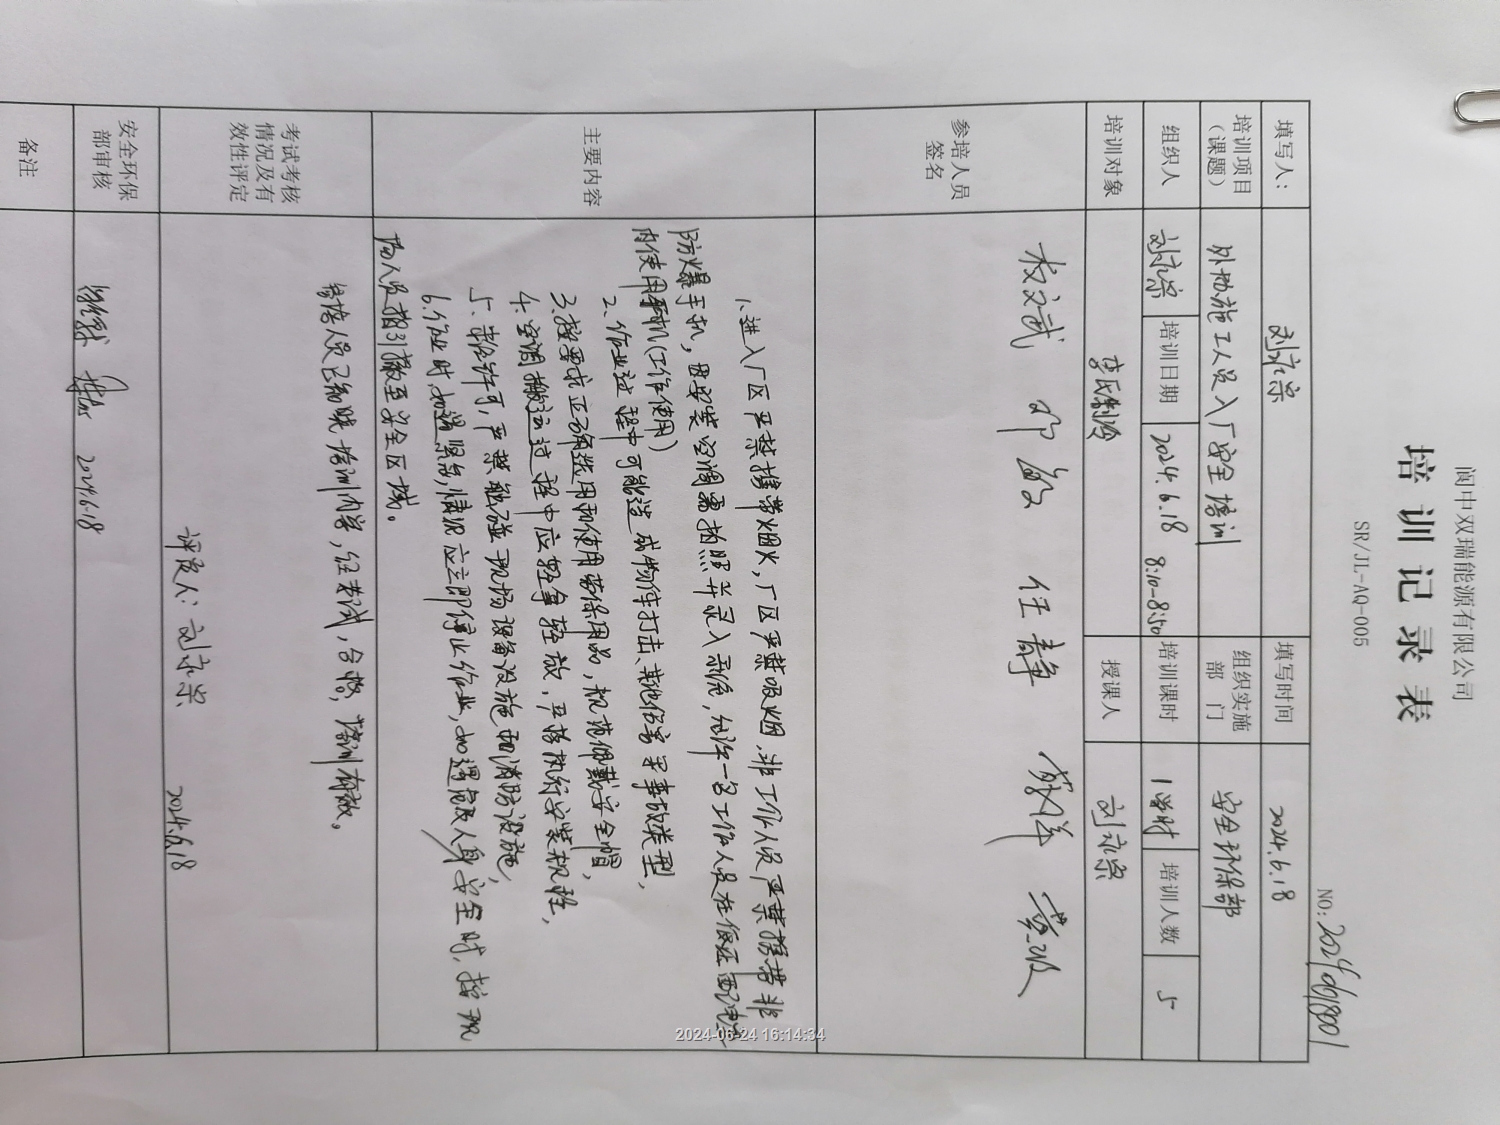 阆中双瑞能源有限公司
培训记录表
SR/JL-AQ-005
NO: 20240618001
填写人: 刘永宗 填写时间 2024.6.18
培训项目（课题） 外协施工人员入厂安全培训 组织实施部门 安全环保部
组织人 刘永宗 培训日期 2024.6.18 8:10-8:50 培训课时 1学时 培训人数 5
培训对象 李氏制冷 授课人 刘永宗
参培人员签名 邓毅 任静 黄波
主要内容
1.进入厂区严禁携带烟火,厂区严禁吸烟.非工作人员严禁携带非
防爆手机,因安装空调需拍照并录入系统,允许一名工作人员在
内使用手机(工作使用)
2.作业过程中可能造成物体打击、其他伤害等事故类型,
3.按要求正确选用和使用劳保用品,规范佩戴安全帽,
4.空调搬运过程中应轻拿轻放,严格执行安装规程,
5.未经许可,严禁触碰现场设备设施和消防设施,
6.作业时,如遇紧急情况应立即停止作业,如遇危及人身安全时,按现
场人员指引撤至安全区域。
考试考核情况及有效性评定
参培人员已知晓培训内容,经考试,合格,培训有效。
评定人: 刘永宗 2024.6.18
安全环保部审核 2024.6.18
备注
2024-06-24 16:14:34